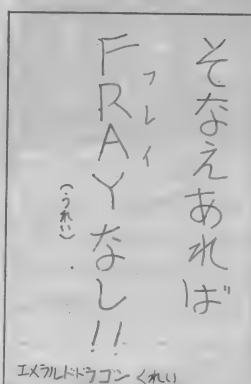 そなえあれば
FRAYなし!!
フレイ
(うれい)
エメラルドドラゴン くれい